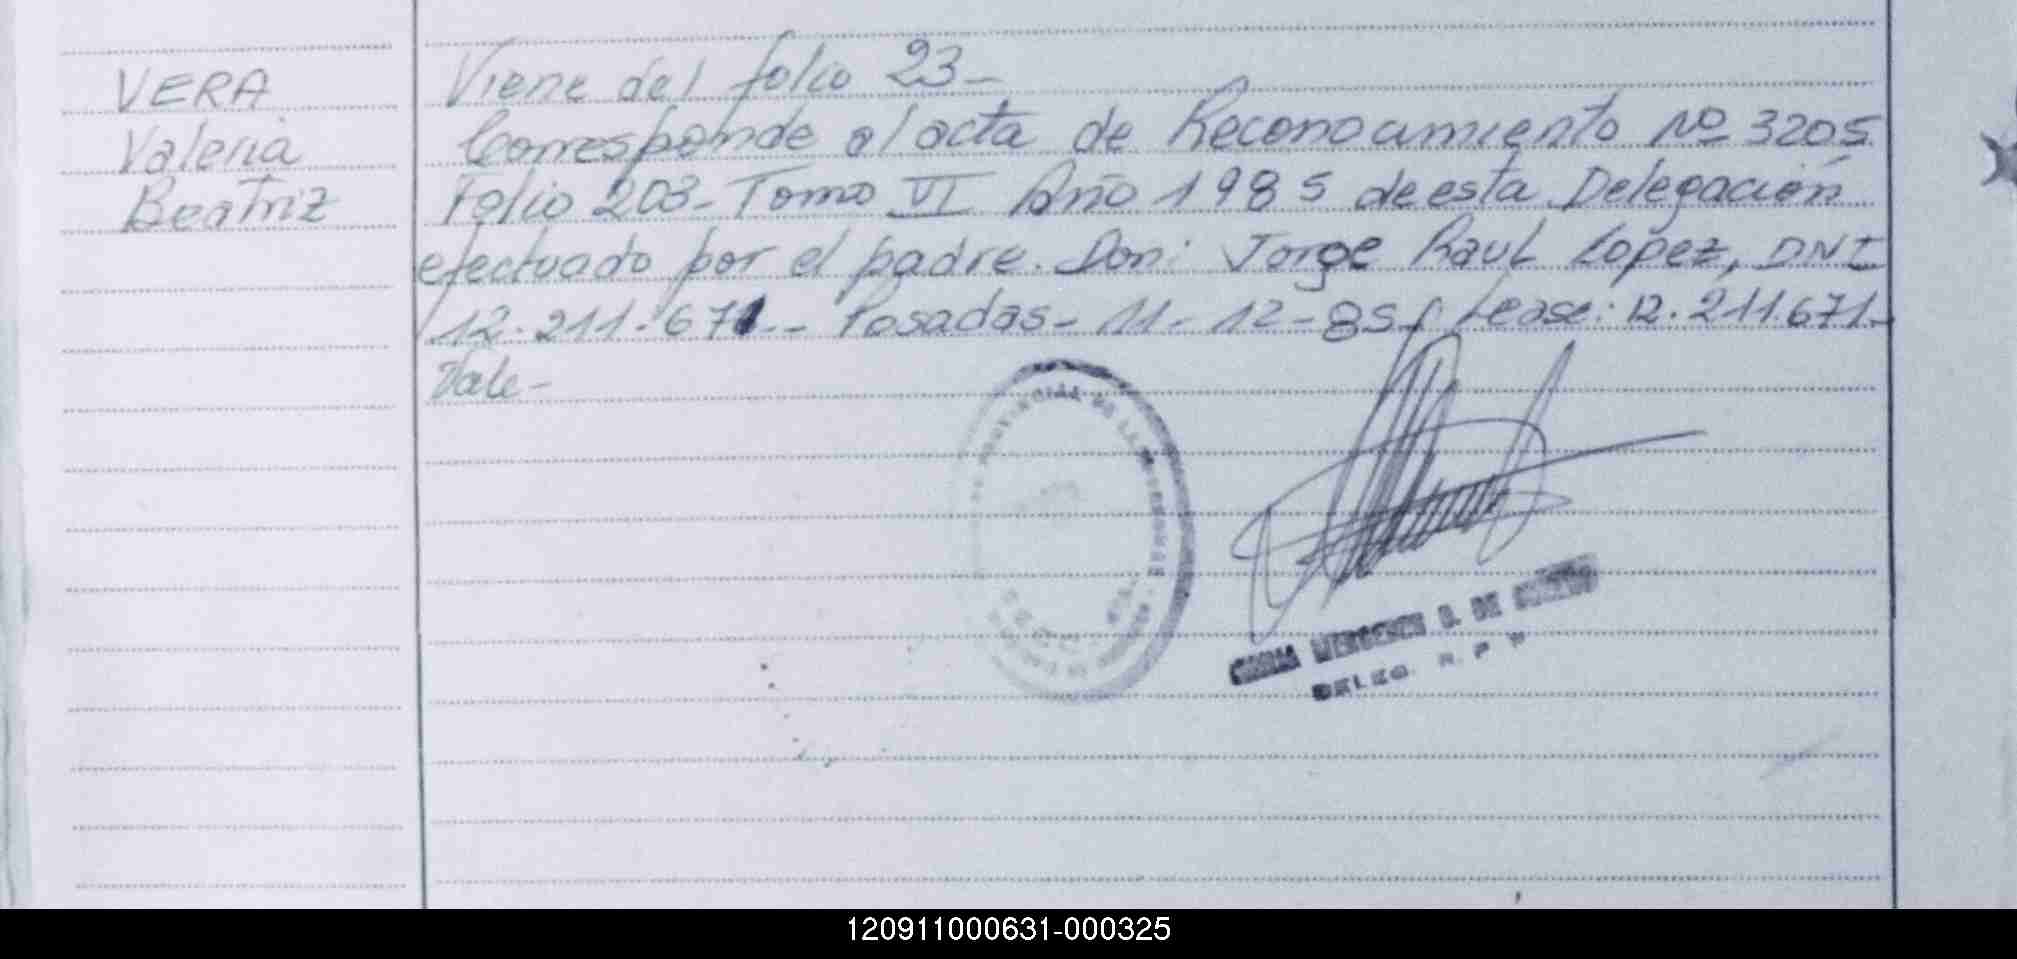 VERA
Valeria
Beatriz
Viene del folio 23-
Corresponde al acta de Reconocimiento Nº 3205
Folio 203- Tomo VI Año 1985 de esta Delegación
efectuado por el padre. Don: Jorge Raul Lopez, DNI
12.211.671-- Posadas- 11- 12-85- Lease: 12.211.671-
Vale-
DE
DELEG. R. P. P
120911000631-000325